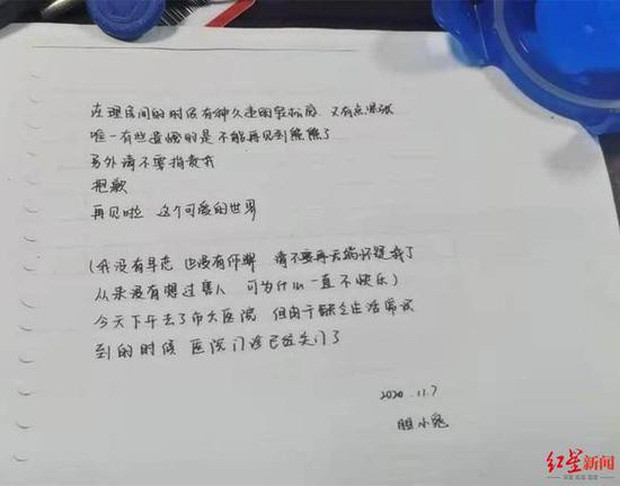 在理房间的时候有种久违的轻松感 又有点紧张
唯一有些遗憾的是 不能再见到熊熊了
另外请不要指责我
抱歉
再见啦 这个可爱的世界
(我没有早恋 也没有作弊 请不要再无端怀疑我了
从来没有想过害人 可为什么一直不快乐)
今天下午去了市六医院 但由于缺乏生活常识
到的时候 医院门诊已经关门了
2020.11.7
胆小鬼
红星新闻